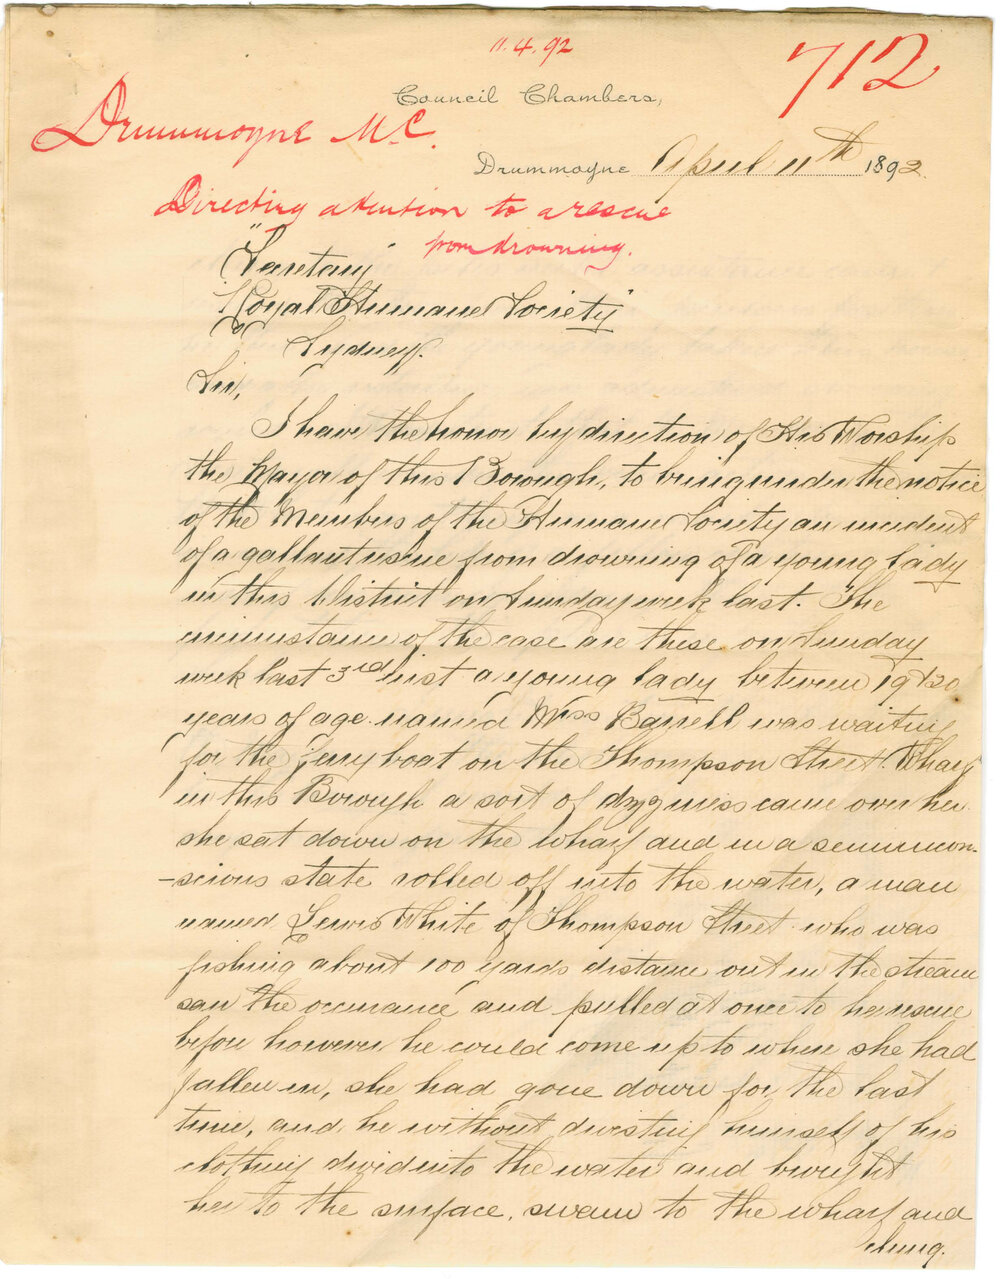 11.4.92
712
Council Chambers,
Drummoyne M.C.
Drummoyne April 11th 1892.
Directing attention to a rescue
from drowning.
"Secretary
Royal Humane Society"
Sydney.
Sir,
I have the honor by direction of His Worship
the Mayor of this Borough, to bring under the notice
of the Members of the Humane Society an incident
of a gallant rescue from drowning of a young lady
in this District on Sunday week last. The
circumstance of the case are these on Sunday
week last 3rd inst a young lady between 19 & 20
years of age named Miss Barrell was waiting
for the ferry boat on the Thompson Street Wharf
in this Borough a sort of dizyness came over her
she sat down on the wharf and in a semiuncon-
-scious state rolled off into the water, a man
named Lewis White of Thompson Street who was
fishing about 100 yards distance out in the stream
saw the occurance and pulled at once to her rescue
before however he could come up to where she had
fallen in, she had gone down for the last
time, and he without divesting himself of his
clothing divid into the water and brought
her to the surface, swam to the wharf and
clung.